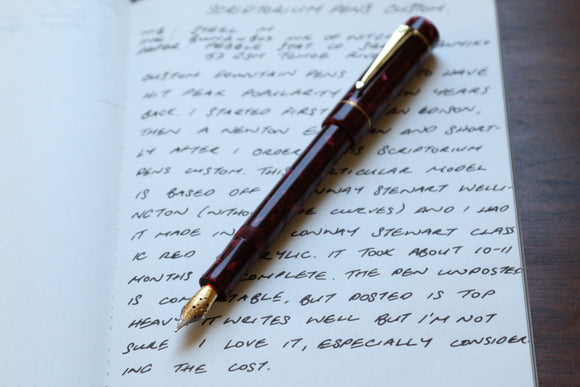 SCRIPTORIUM PENS CUSTOM.
NIB: STEEL M.
INK: BUNGUBOX INK OF
PAPER PEBBLE STAT. CO.
52 GSM TOMOE RIVER
CUSTOM FOUNTAIN PENS TO HAVE
HIT PEAK POPULARITY IN YEARS
BACK. I STARTED FIRST AN EDISON,
THEN A NEWTON AN AND SHORT-
LY AFTER I ORDER IS SCRIPTORIUM
PENS CUSTOM. THIS TICULAR MODEL
IS BASED OFF NWAY STEWART WELLI-
NGTON (WITHO HE CURVES) AND I HAD
IT MADE IN CONWAY STEWART CLASS
IC RED RYLIC. IT TOOK ABOUT 10-11
MONTHS COMPLETE. THE PEN UNPOSTED
IS COM TABLE, BUT POSTED IS TOP
HEAVY. IT WRITES WELL BUT I'M NOT
SURE I LOVE IT, ESPECIALLY CONSIDER-
ING THE COST.